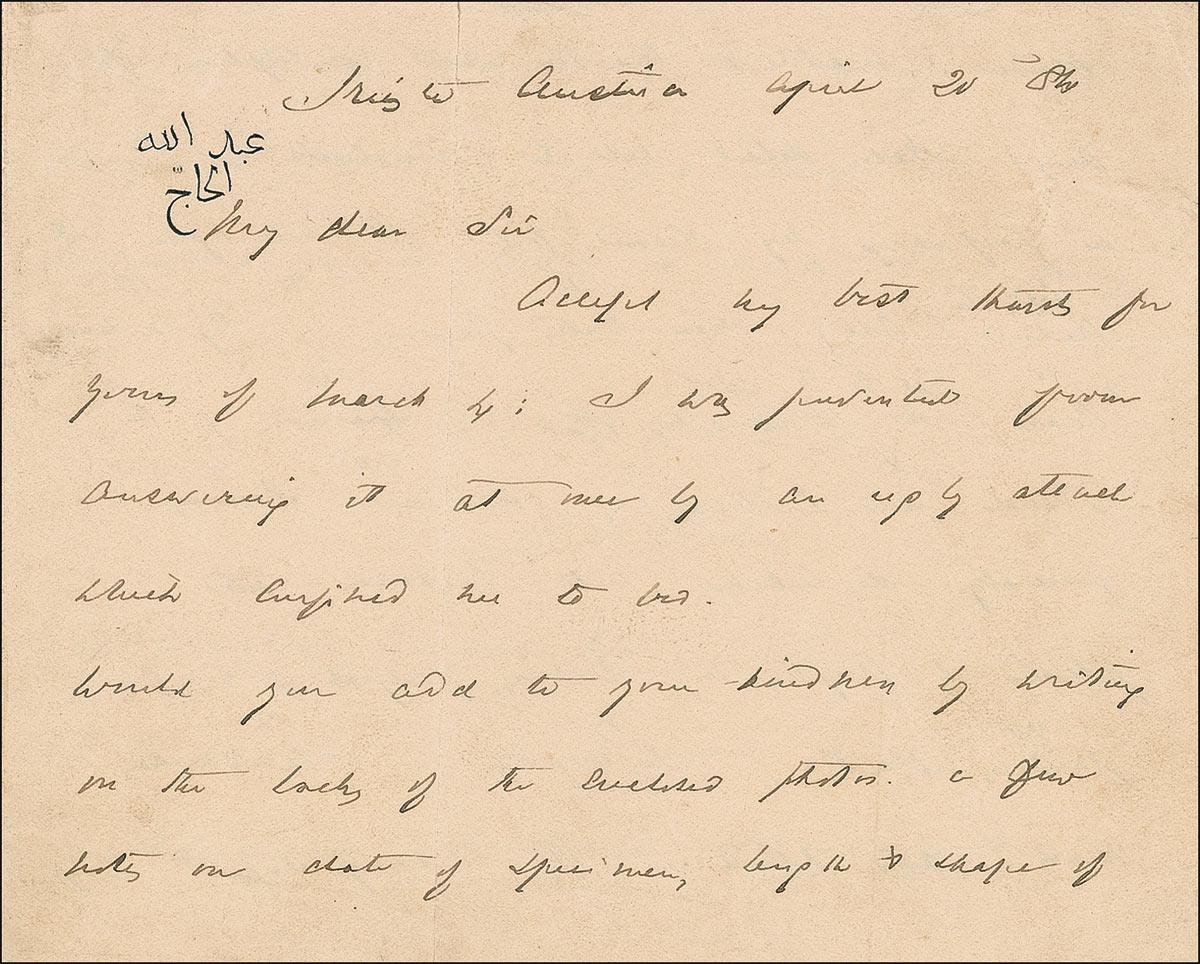 Trieste Austria April 20 '84
عبد الله
الحاجّ
My dear Sir
Accept my best thanks for
yours of March 4; I was prevented from
answering it at once by an ugly attack
which confined me to bed.
Would you add to your kindness by writing
on the backs of the enclosed photos. a few
notes on date of specimen, length & shape of